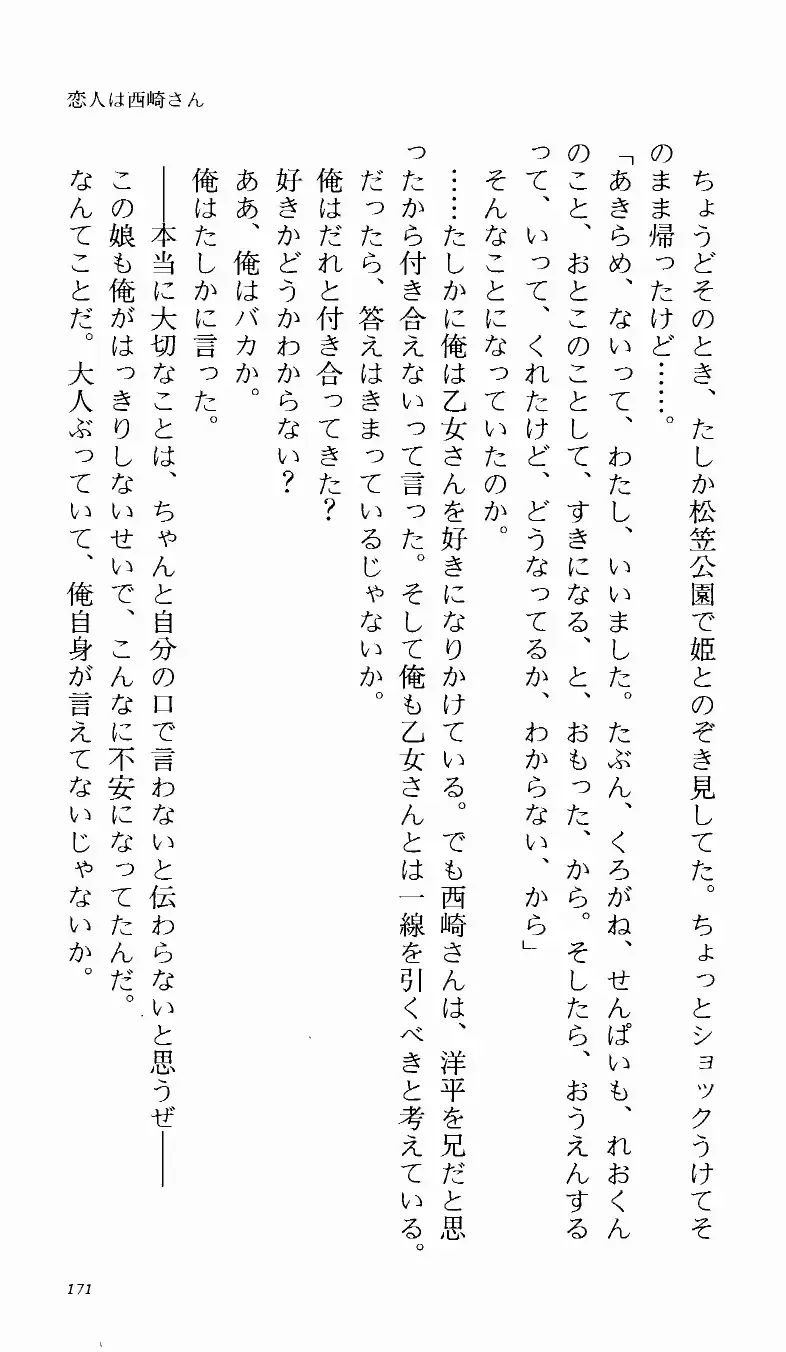 恋人は西崎さん
ちょうどそのとき、たしか松笠公園で姫とのぞき見してた。ちょっとショックうけてそ
のまま帰ったけど……。
「あきらめ、ないって、わたし、いいました。たぶん、くろがね、せんぱいも、れおくん
のこと、おとこのことして、すきになる、と、おもった、から。そしたら、おうえんする
って、いって、くれたけど、どうなってるか、わからない、から」
そんなことになっていたのか。
……たしかに俺は乙女さんを好きになりかけている。でも西崎さんは、洋平を兄だと思
ったから付き合えないって言った。そして俺も乙女さんとは一線を引くべきと考えている。
だったら、答えはきまっているじゃないか。
俺はだれと付き合ってきた？
好きかどうかわからない？
ああ、俺はバカか。
俺はたしかに言った。
――本当に大切なことは、ちゃんと自分の口で言わないと伝わらないと思うぜ――
この娘も俺がはっきりしないせいで、こんなに不安になってたんだ。
なんてことだ。大人ぶっていて、俺自身が言えてないじゃないか。
171